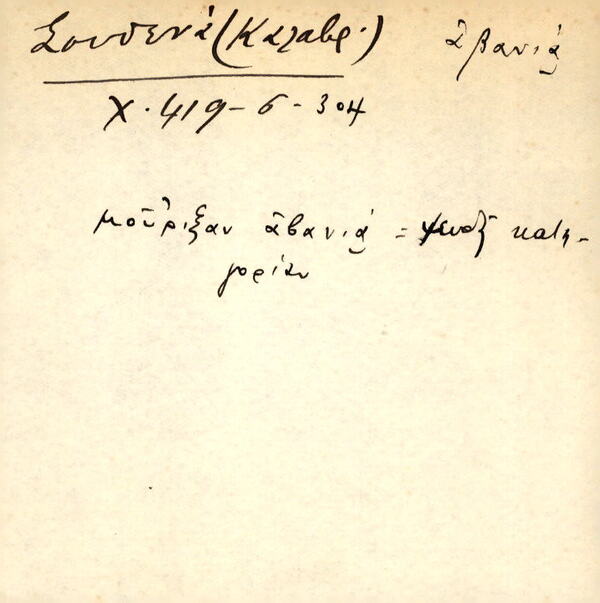 Σουδενά (Καλαβρ.) ἀβανιά
Χ. 419 - 6 - 304
μοῦριξαν ἀβανιά = ψευδῆ κατη-
γορίαν